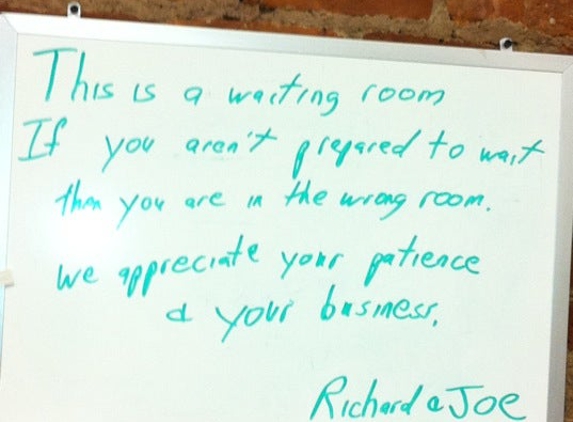 This is a waiting room
If you aren't prepared to wait
then you are in the wrong room.
We appreciate your patience
& your business.
Richard & Joe